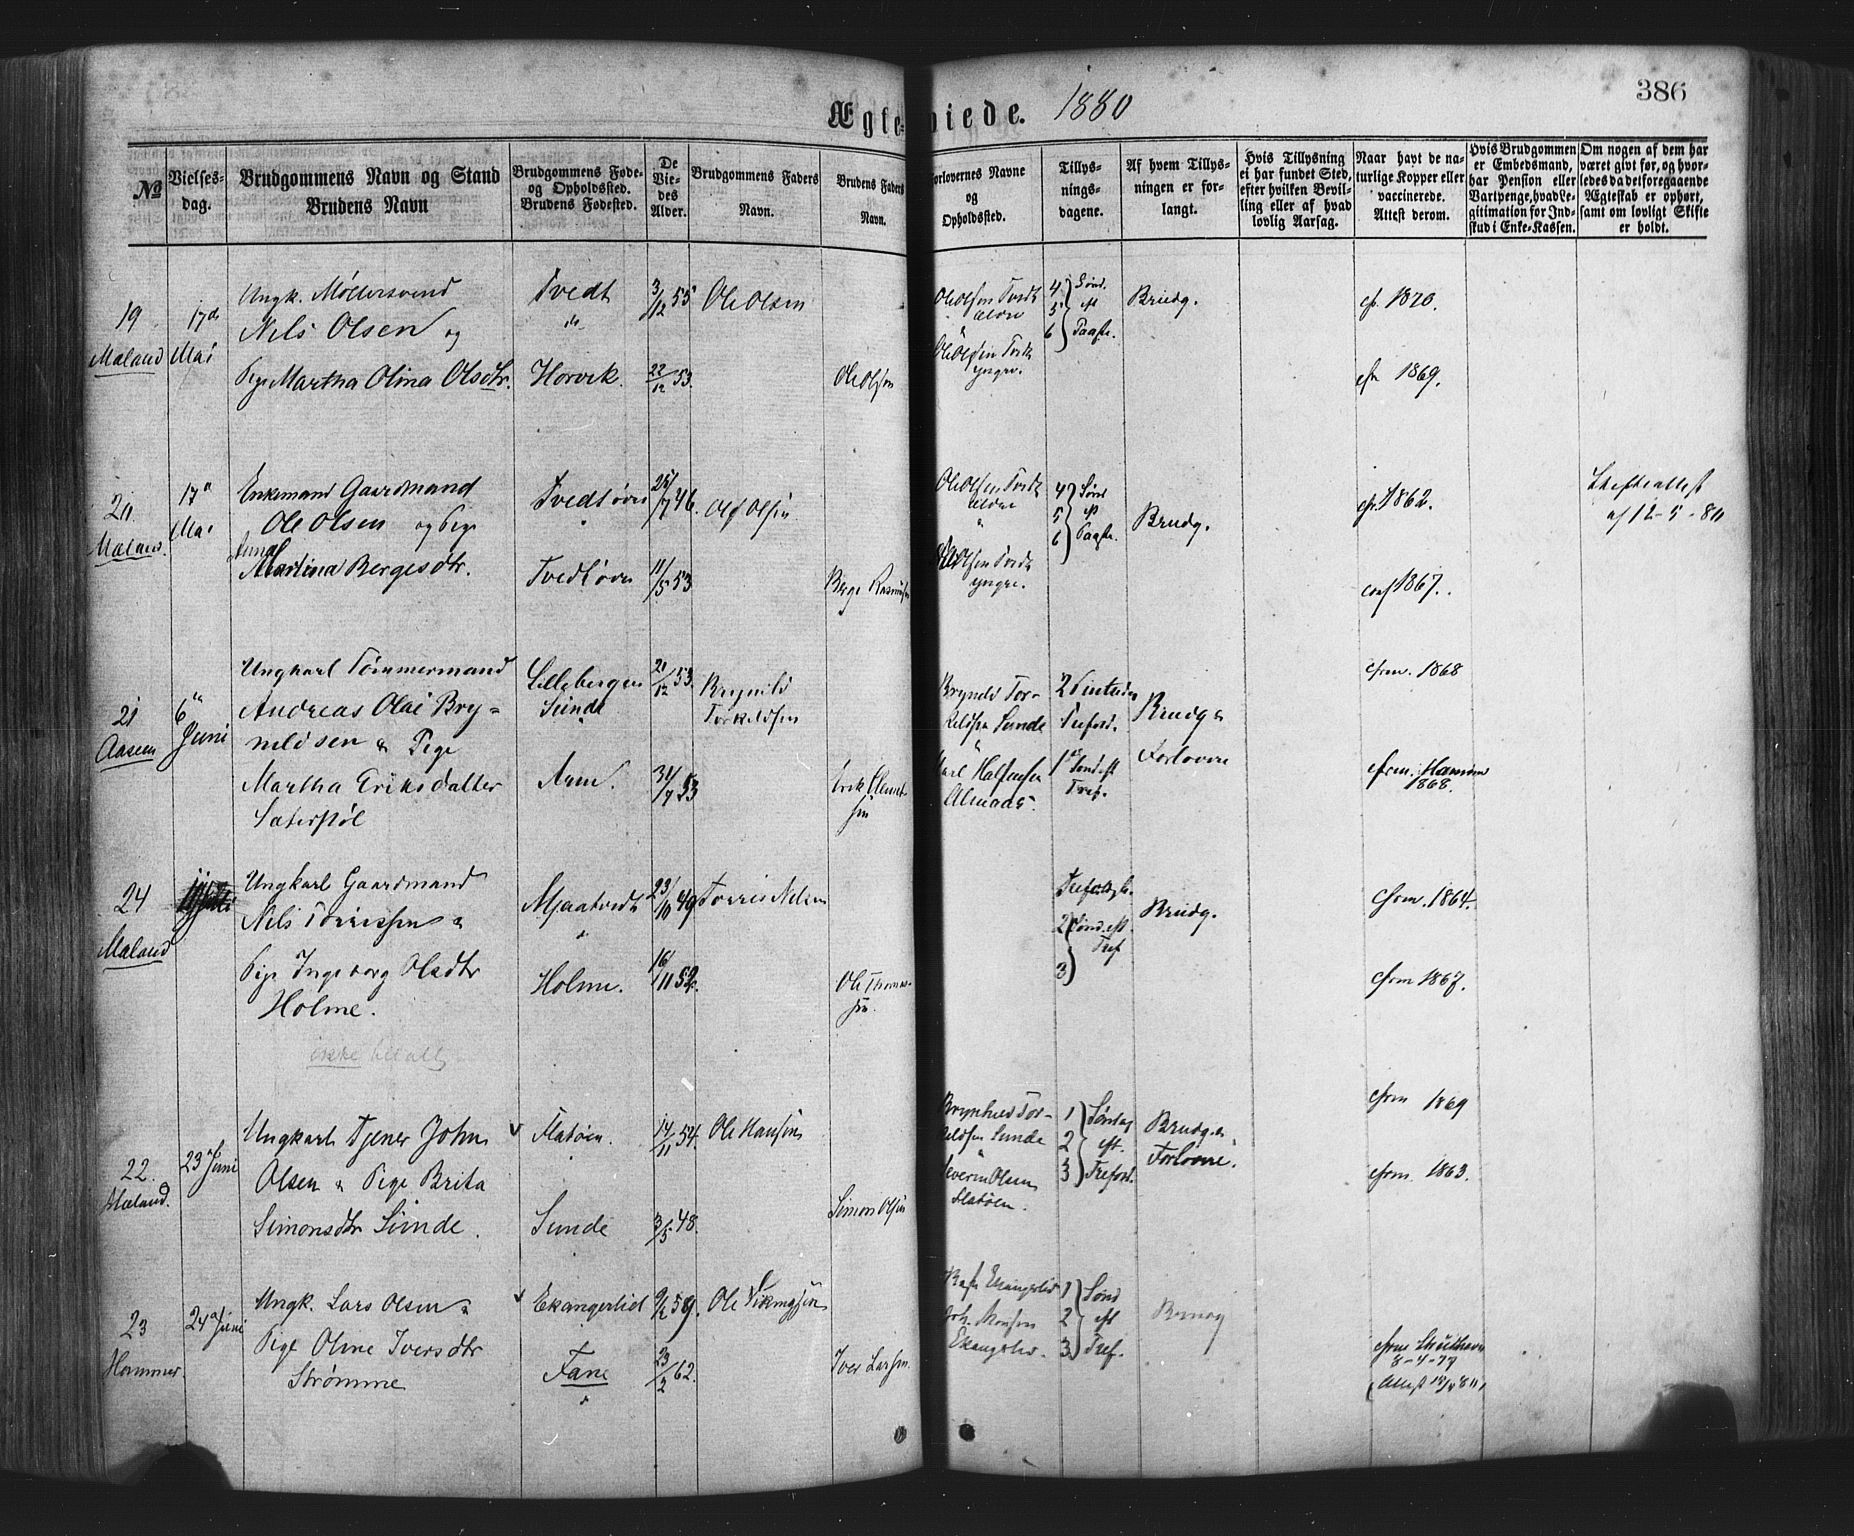 Ægteviede. 1880
386
№
Vielses-
dag.
Brudgommens Navn og Stand
Brudens Navn
Brudgommens Føde-
og Opholdssted.
Brudens Fødested.
De
Vie-
des
Alder.
Brudgommens Faders
Navn.
Brudens Faders
Navn.
Forlovernes Navne
og
Opholdssted.
Tillys-
nings-
dagene.
Af hvem Tillys-
ningen er for-
langt.
Hvis Tillysning
ei har fundet Sted,
efter hvilken Bevil-
ling eller af hvad
lovlig Aarsag.
Naar havt de na-
turlige Kopper eller
vaccinerede.
Attest derom.
Hvis Brudgommen
er Embedsmand,
har Pension eller
Vartpenge, hvad Le-
gitimation for Ind-
skud i Enke-Kassen.
Om nogen af dem har
været givt før, og hvor-
ledes da det foregaaende
Ægteskab er ophørt,
samt om lovligt Skifte
er holdt.
19
Mæland
17de
Mai
Ungk. Møllersvend
Nils Olsen og
Pige Martha Olina Olsdtr.
Tvedt
Horvik.
3/12 55
22/12 53.
Ole Olsen
Ole Olsen
Ole Olsen Tvedt
ældre
Ole Olsen Tvedt
yngre.
4
5
6
Sønd.
eft
Paaske.
Brudg.
cfr. 1870.
cfr 1869.
20
Mæland.
17de
Mai
Enkemand Gaardmand
Ole Olsen og Pige
Anna
Martina Bergesdtr.
Tvedtøren
Tvedtøren
25/7 46.
11/5 53
Ole Olsen
Berge Rasmusen
Ole Olsen Tvedt
ældre
Ole Olsen Tvedt
yngre.
4
5
6
Sønd
eft
Paaske.
Brudg.
cfr. 1862.
conf 1867.
Skifteattest
af 12-5-80
21
Aaseen
6te
Juni
Ungkarl Tømmermand
Andreas Olai Bry-
nildsen & Pige
Martha Eriksdatter
Sæterstøl
Lillebergen
Sunde
Arne.
21/12 53.
31/7 53
Brynild
Torkeldsen
Erik Clemet-
sen
Brynild Tor-
keldsen Sunde
Karl Halfensen
Alnaas.
2 Pintsedag
Trefold.
1ste
Sønd eft
Tref.
Brudg &
Forlovere
cfrm. 1868
cfrm. Hammer
1868.
24
Mæland
Ungkarl Gaardmand
Nils Torrissen &
Pige Ingeborg Olsdtr
Holme.
ikke betalt
Mjaatvedt
Holme.
23/10 49
16/11 52.
Torris Nilsen
Ole Thomas-
sen.
Trefoldgh.
2
3
Sønd. eft
Tref
Brudg.
cfrm. 1864.
cfrm 1867.
22.
Mæland.
23de Juni
Ungkarl Tjener John
Olsen & Pige Brita
Simonsdtr Sunde.
Flatøen.
Sunde
14/11 54.
3/5 48.
Ole Hansen
Simon Olsen
Brynhild Tor-
keldsen Sunde
Severin Olsen
Flatøen.
1
2
3
Søndag
eft.
Trefold.
Brudg. &
Forlovere.
cfrm 1869
cfrm. 1863.
23
Hammer.
24de Juni
Ungk. Lars Olsen &
Pige Oline Iversdtr
Strømme
Ekangerlid
Fane
9/2 59.
23/2 62.
Ole Vikingsen
Iver Larsen.
Ekangerlid
Joh. Monsen
Ekangerlid.
1
2
3
Sønd
eft
Tref.
Brudg
cfrm Strudshavn
8-4-77